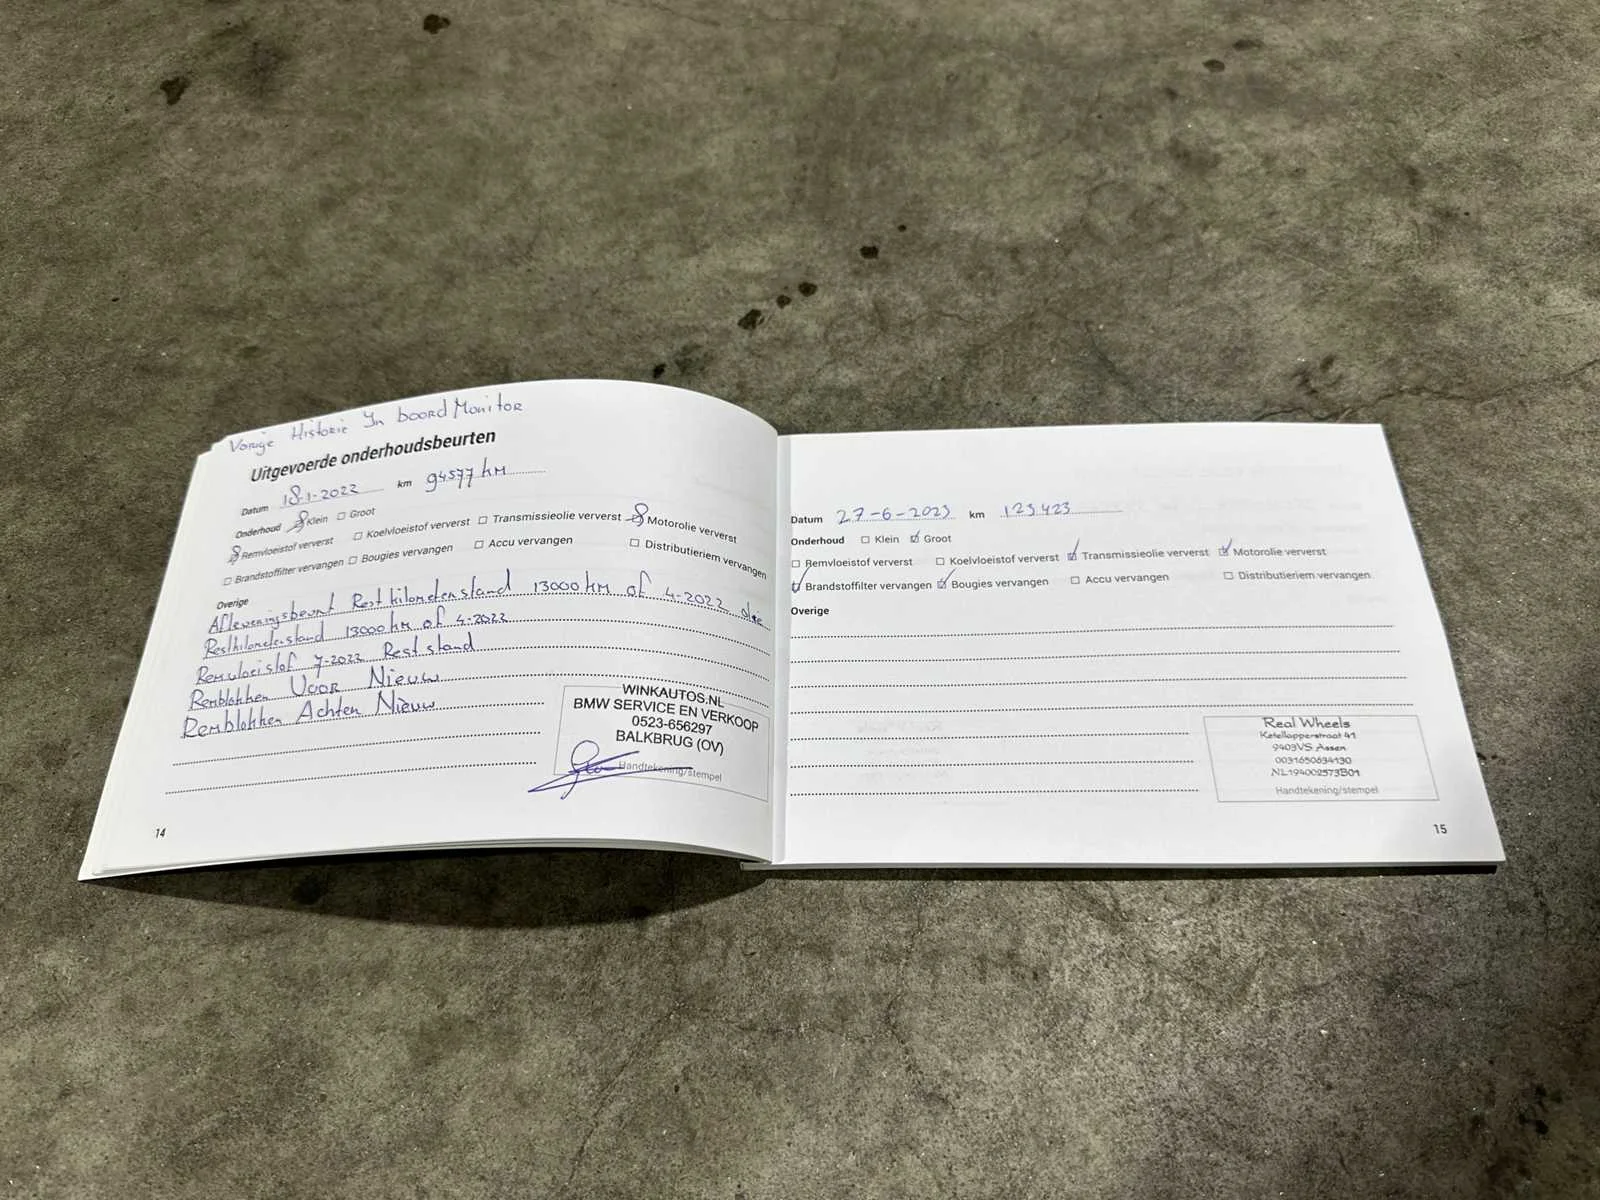 Vorige Historie In boord Monitor
Uitgevoerde onderhoudsbeurten
Datum 18-1-2022 km 94577 km
Onderhoud Klein Groot
Remvloeistof ververst Koelvloeistof ververst Transmissieolie ververst Motorolie ververst
Brandstoffilter vervangen Bougies vervangen Accu vervangen Distributieriem vervangen
Overige
Afleveringsbeurt Restkilometerstand 13000 km of 4-2022 olie
Restkilometerstand 13000 km of 4-2022
Remvloeistof 7-2022 Reststand
Remblokken Voor Nieuw
Remblokken Achten Nieuw
WINKAUTOS.NL
BMW SERVICE EN VERKOOP
0523-656297
BALKBRUG (OV)
Handtekening/stempel
14
Datum 27-6-2023 km 123423
Onderhoud Klein Groot
Remvloeistof ververst Koelvloeistof ververst Transmissieolie ververst Motorolie ververst
Brandstoffilter vervangen Bougies vervangen Accu vervangen Distributieriem vervangen
Overige
Real Wheels
Ketellapperstraat 41
9403VS Assen
0031650634130
NL194002573B01
Handtekening/stempel
15